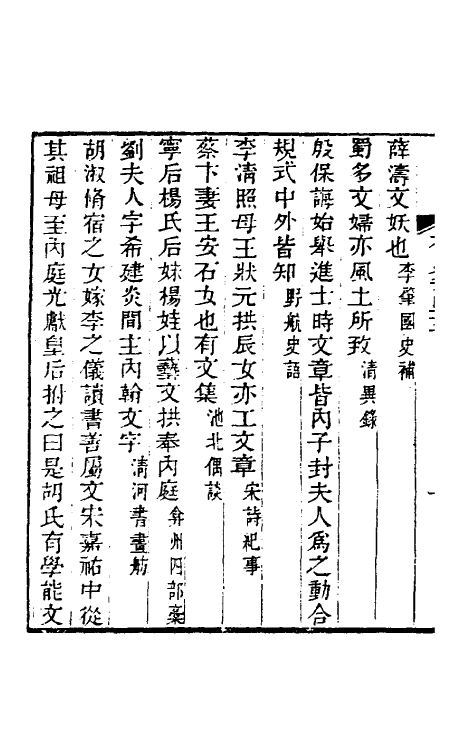 薛濤文妖也李肇國史補
蜀多文婦亦風土所致清異錄
殷保誨始舉進士時文章皆內子封夫人爲之動合
規式中外皆知野航史語
李清照母王狀元拱辰女亦工文章宋詩紀事
蔡卞妻王安石女也有文集池北偶談
寧后楊氏后妹楊娃以藝文拱奉內庭弇州四部稾
劉夫人字希建炎間主內翰文字清河書畫舫
胡淑脩宿之女嫁李之儀讀書善屬文宋嘉祐中從
其祖母至內庭光獻皇后拊之曰是胡氏有學能文